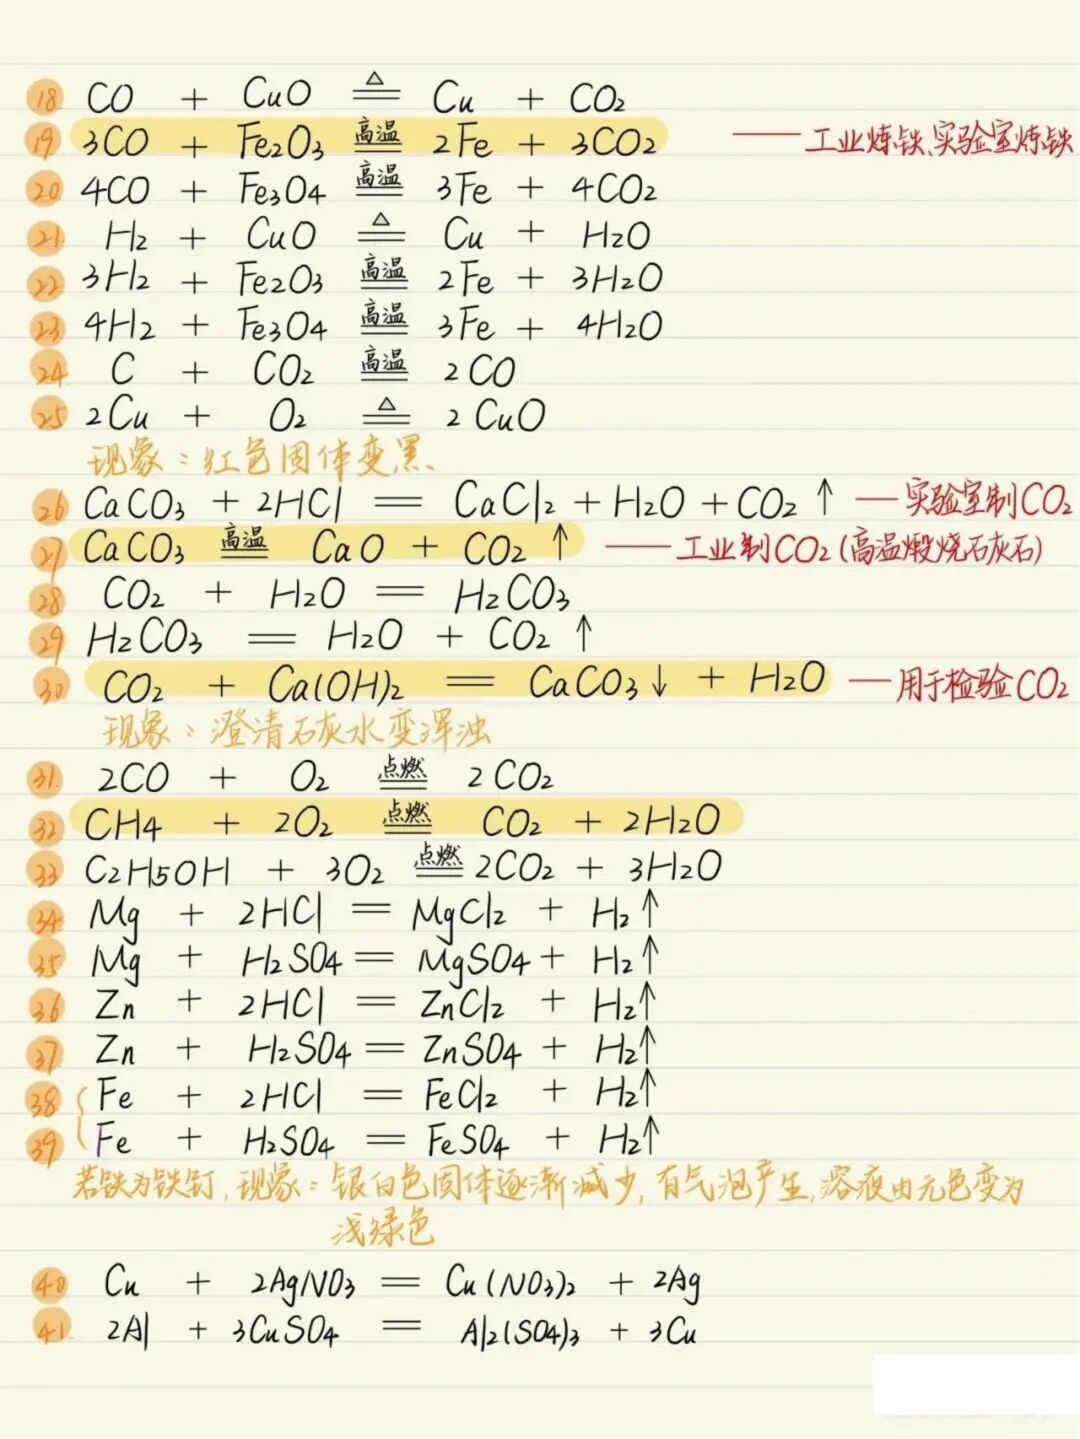 18 CO + CuO ≜ Cu + CO₂
19 3CO + Fe₂O₃ 高温== 2Fe + 3CO₂ —— 工业炼铁、实验室炼铁
20 4CO + Fe₃O₄ 高温== 3Fe + 4CO₂
21. H₂ + CuO ≜ Cu + H₂O
22 3H₂ + Fe₂O₃ 高温== 2Fe + 3H₂O
23 4H₂ + Fe₃O₄ 高温== 3Fe + 4H₂O
24. C + CO₂ 高温== 2CO
25 2Cu + O₂ ≜ 2CuO
现象：红色固体变黑
26 CaCO₃ + 2HCl == CaCl₂ + H₂O + CO₂↑ —— 实验室制CO₂
27 CaCO₃ 高温== CaO + CO₂↑ —— 工业制CO₂(高温煅烧石灰石)
28 CO₂ + H₂O == H₂CO₃
29 H₂CO₃ == H₂O + CO₂↑
30 CO₂ + Ca(OH)₂ == CaCO₃↓ + H₂O —— 用于检验CO₂
现象：澄清石灰水变浑浊
31. 2CO + O₂ 点燃== 2CO₂
32 CH₄ + 2O₂ 点燃== CO₂ + 2H₂O
33 C₂H₅OH + 3O₂ 点燃== 2CO₂ + 3H₂O
34 Mg + 2HCl == MgCl₂ + H₂↑
35 Mg + H₂SO₄ == MgSO₄ + H₂↑
36 Zn + 2HCl == ZnCl₂ + H₂↑
37. Zn + H₂SO₄ == ZnSO₄ + H₂↑
38 Fe + 2HCl == FeCl₂ + H₂↑
39 Fe + H₂SO₄ == FeSO₄ + H₂↑
若铁为铁钉，现象：银白色固体逐渐减少，有气泡产生，溶液由无色变为
浅绿色
40 Cu + 2AgNO₃ == Cu(NO₃)₂ + 2Ag
41. 2Al + 3CuSO₄ == Al₂(SO₄)₃ + 3Cu